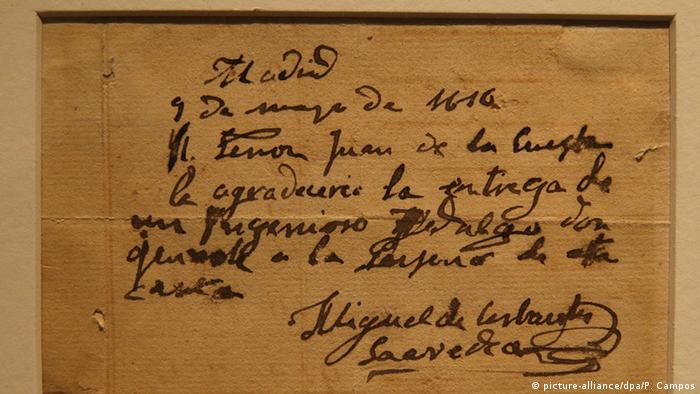 Madrid
9 de mayo de 1610
Sl. Señor Juan de la Cuesta
la agradecere la entrega de
un Ingenioso Hidalgo don
a la Persona de esta
carta
Miguel de Cerbantes
Saavedra
© picture-alliance/dpa/P. Campos